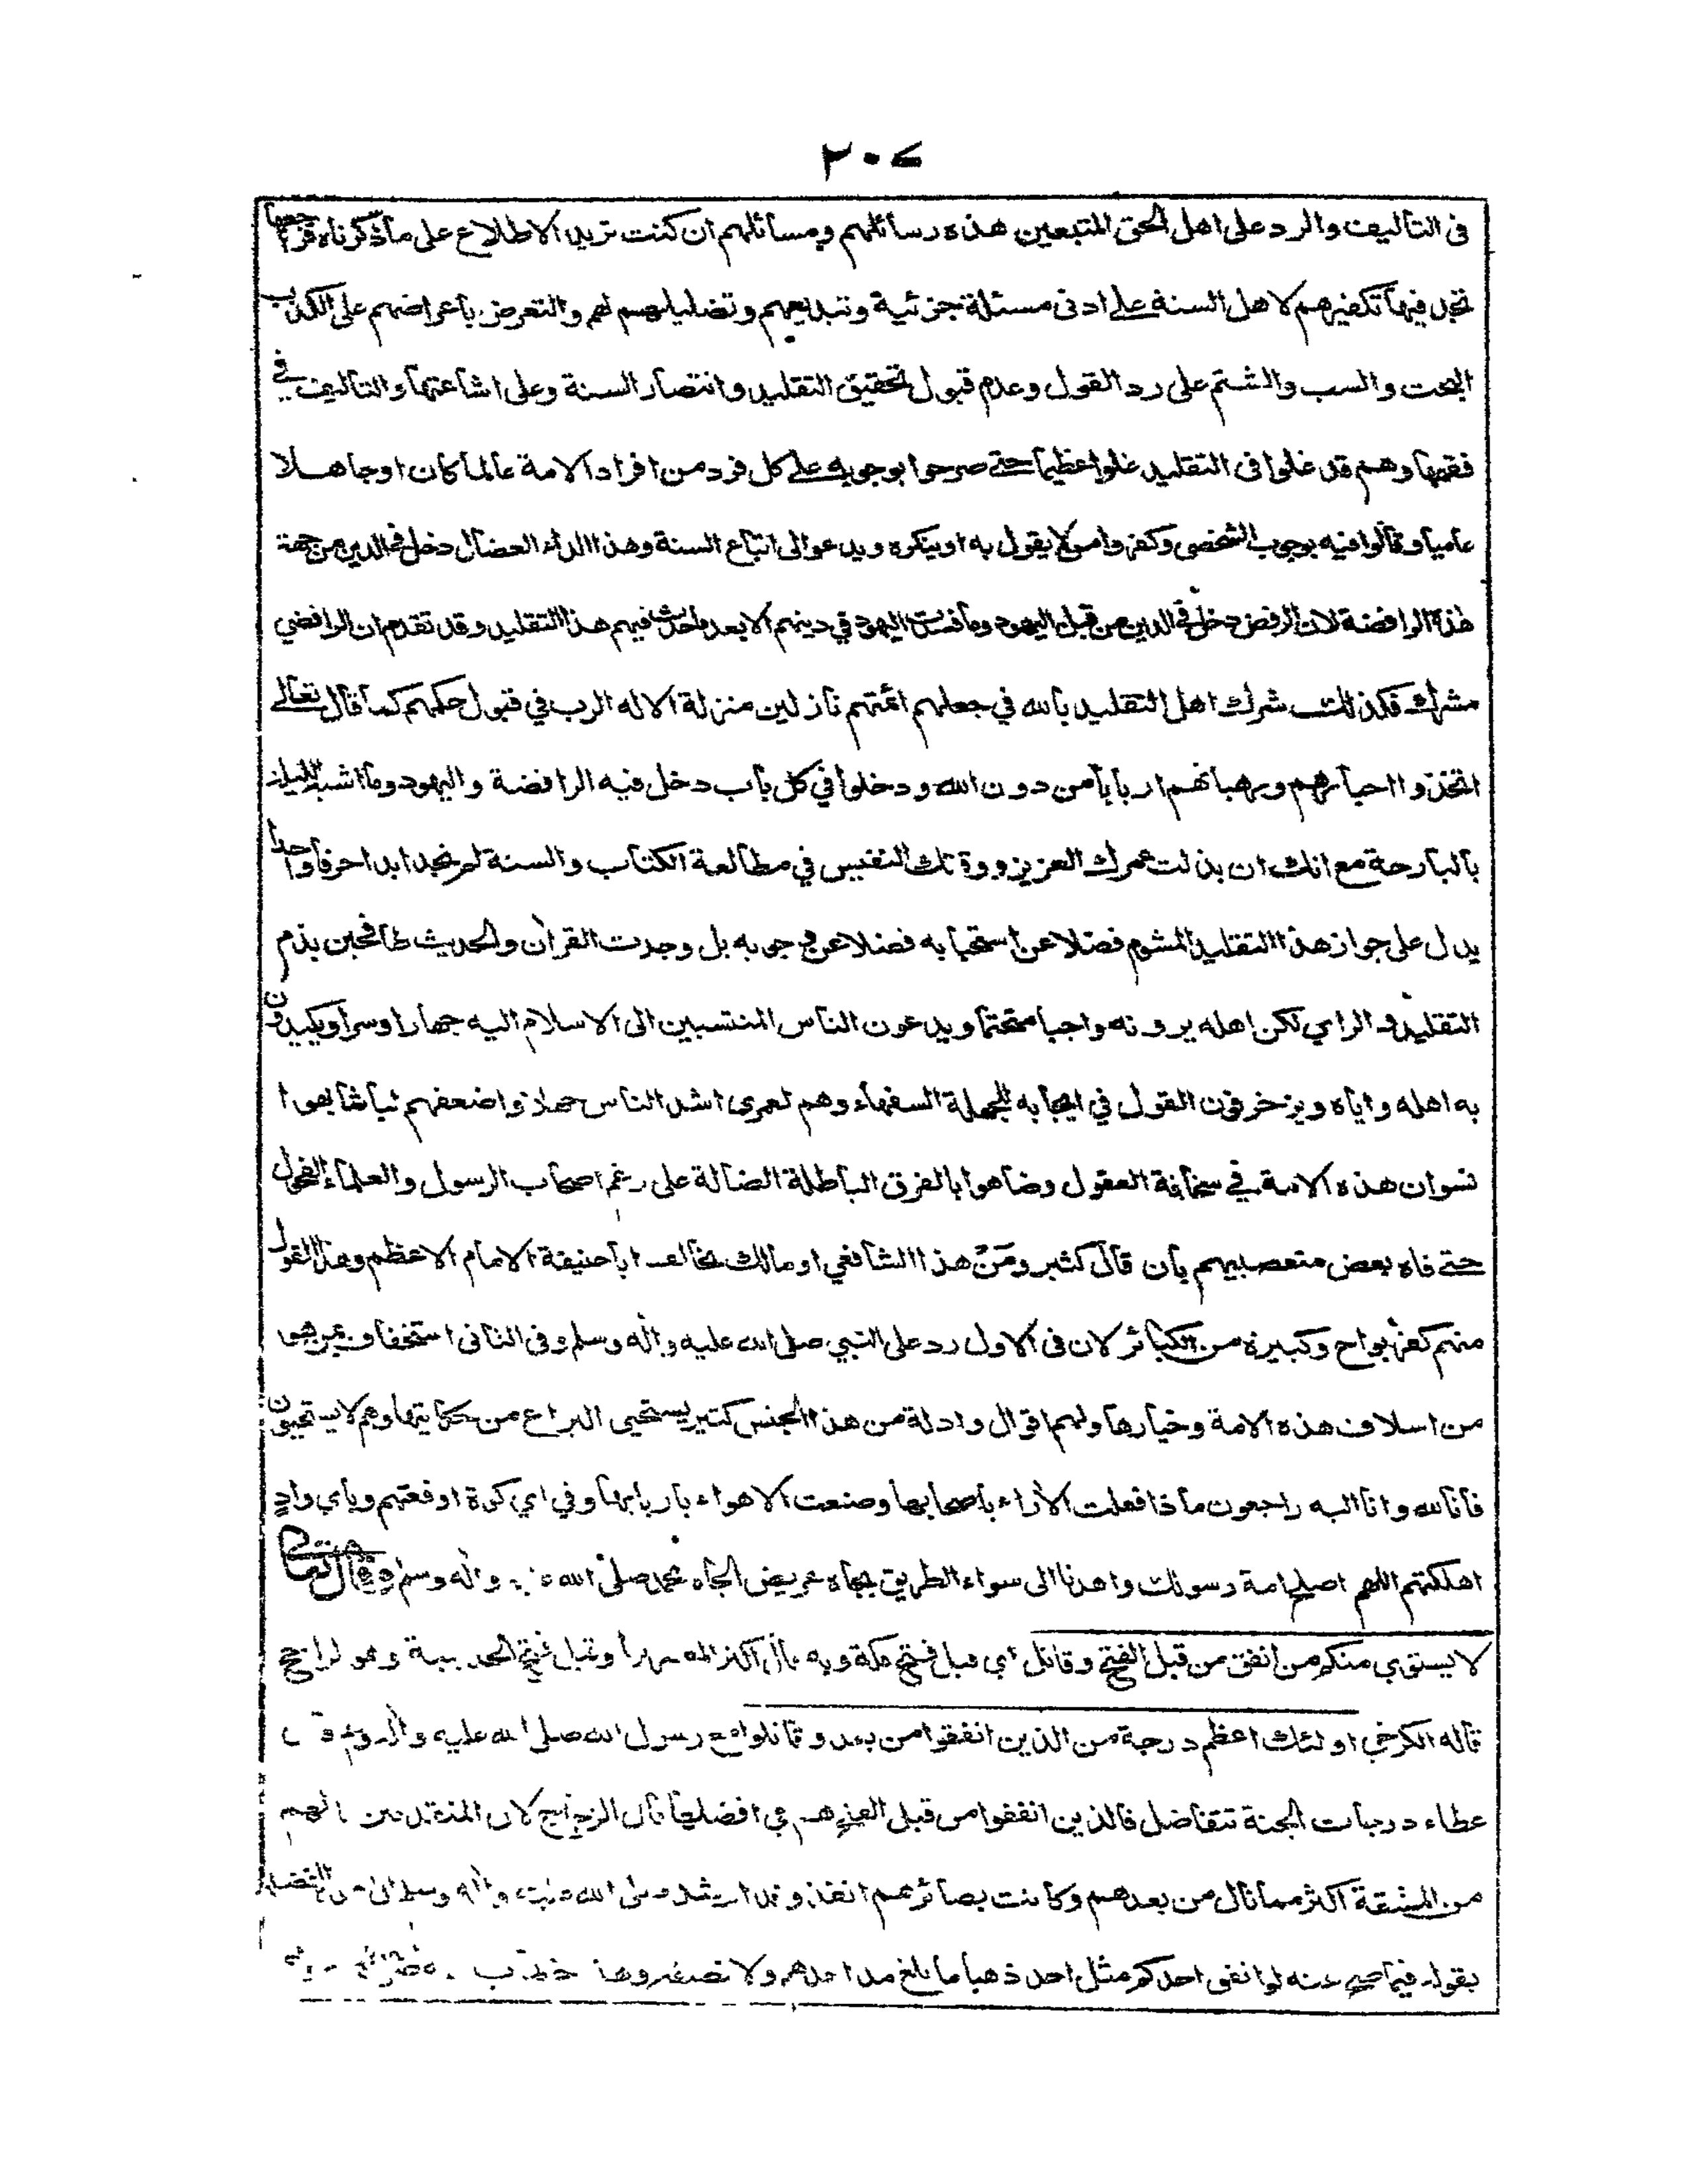 ٢٠٧
فى التأليف والرد على اهل الحق المتبعين هذه رسائلهم ومسائلهم ان كنت تريد الاطلاع على ما ذكرناه فراجعها
تجد فيها تكفيرهم لاهل السنة على ادنى مسئلة جزئية وتبديعهم وتضليلهم لهم والتعرض باعراضهم على الكذب
البحت والسب والشتم على رد القول وعدم قبول تحقيق التقليد وانتصار السنة وعلى اشاعتها والتاليف في
فقهها وهم قد غلوا فى التقليد غلوا عظيما حتى صرحوا بوجوبه على كل فرد من افراد الامة عالما كان او جاهلا
عاميا وقالوا فيه بوجوب الشخصى وكفروا من لا يقول به او ينكره ويدعو الى اتباع السنة وهذا الداء العضال دخل في الدين من جهة
هذه الرافضة لان الرفض دخل في الدين من قبل اليهود وما فسدت اليهود في دينهم الا بعد ما حدث فيهم هذا التقليد وقد تقدم ان الرافضي
مشرك فكذلك شرك اهل التقليد بالله في جعلهم ائمتهم نازلين منزلة الاله الرب في قبول حكمهم كما قال تعالى
اتخذوا احبارهم ورهبانهم اربابا من دون الله ودخلوا في كل باب دخل فيه الرافضة واليهود وما اشبه الليلة
بالبارحة مع انك ان بذلت عمرك العزيز ووقتك النفيس في مطالعة الكتاب والسنة لم تجد ابدا حرفا واحدا
يدل على جواز هذا التقليد المشوم فضلا عن استحبابه فضلا عن وجوبه بل وجدت القراٰن والحديث طافحين بذم
التقليد والراي لكن اهله يرونه واجبا متحتما ويدعون الناس المنتسبين الى الاسلام اليه جهارا وسرا ويكيدون
به اهله واياه ويزخرفون القول في ايجابه للجملة السفهاء وهم لعمرى اشد الناس جهلا واضعفهم شابهوا
نسوان هذه الامة في سخافة العقول وضاهوا بالفرق الباطلة الضالة على رغم اصحاب الرسول والعلماء الفحول
حتى فاه بعض متعصبيهم بان قال كثير ومَن هذا الشافعي او مالك يخالف ابا حنيفة الامام الاعظم وهذا القول
منهم كفر بواح وكبيرة من الكبائر لان فى الاول رد على النبي صلى الله عليه واٰله وسلم وفى الثانى استخفاف بمن هو
من اسلاف هذه الامة وخيارها ولهم اقوال وادلة من هذا الجنس كثير يستحيى اليراع من حكايتها وهم لا يستحيون
فانا لله وانا اليه راجعون ماذا فعلت الاٰراء باصحابها وصنعت الاهواء باربابها وفي اي كوة اوقعتهم وباي وادٍ
اهلكتهم اللهم اصلح امة رسولك واهدنا الى سواء الطريق بجاه عريض الجاه محمد صلى الله واٰله وسلم وقال تعالى
لا يستوي منكم من انفق من قبل الفتح وقاتل اي قبل فتح مكة وبه قال اكثر المفسرين وقبل فتح الحديبية وهو الراجح
قاله الكرخي اولئك اعظم درجة من الذين انفقوا من بعد وقاتلوا مع رسول الله صلى الله عليه واٰله
عطاء درجات الجنة تتفاضل فالذين انفقوا من قبل الفتح هم في افضلها قال الزجاج لان المتقدمين نالهم
من المشقة اكثر مما نال من بعدهم وكانت بصائرهم انفذ وقد ارشد صلى الله عليه واٰله وسلم
بقوله فيما صح عنه لو انفق احدكم مثل احد ذهبا ما بلغ مد احدهم ولا نصيفه وهذا خطاب